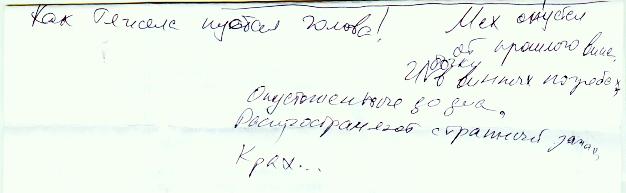 Как Гензеля пустая голова!
Мех опустел
от прошлого вина,
И бочку в винных погребах,
Опустошенные до дна,
Распространяют странный запах,
Крах...